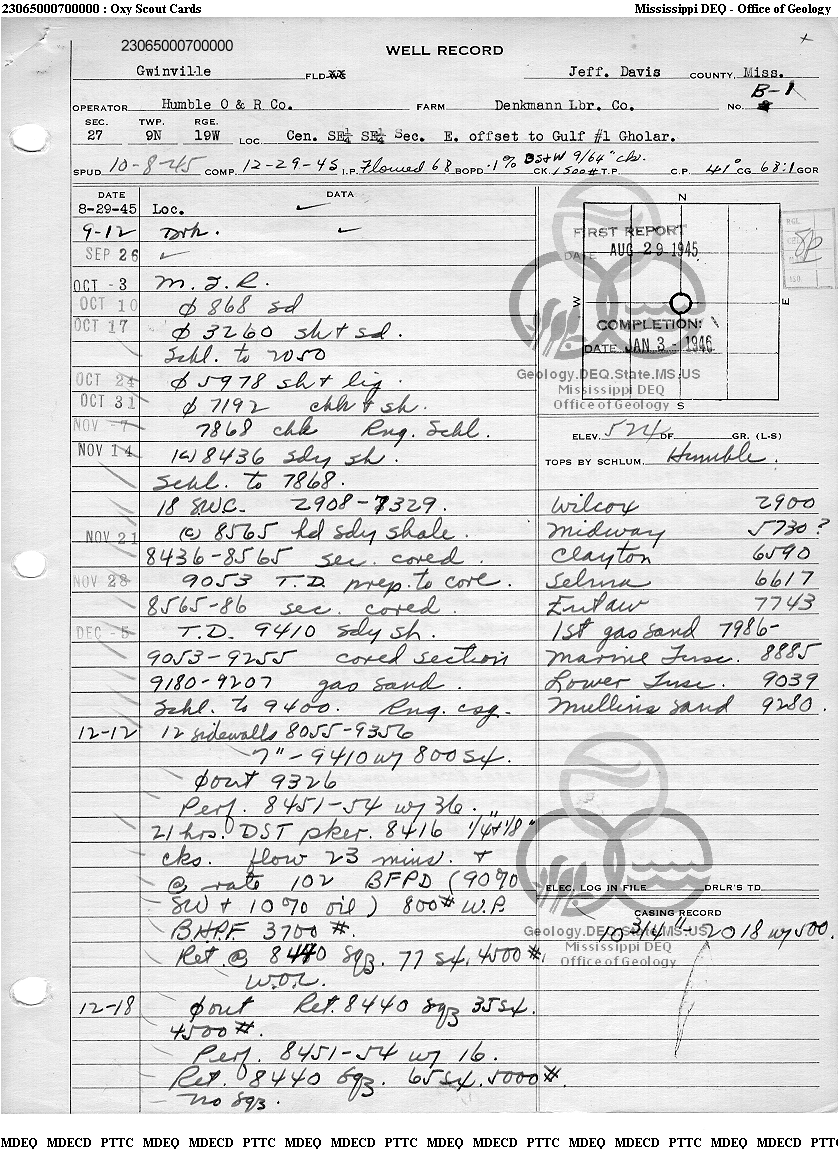 23065000700000 : Oxy Scout Cards Mississippi DEQ - Office of Geology
23065000700000
WELL RECORD
Gwinville FLD. Jeff. Davis COUNTY, Miss.
OPERATOR Humble O & R Co. FARM Denkmann Lbr. Co. No. B-1
SEC. TWP. RGE.
27 9N 19W LOC. Cen. SE¼ SE¼ Sec. E. offset to Gulf #1 Gholar.
SPUD. 10-8-45 COMP. 12-29-45 I.P. Flowed 68 BOPD .1% BS&W 9/64" ck. CK. 1500# T.P. C.P. 41° CG 68:1 GOR
DATE DATA
8-29-45 Loc.
9-12 Drk.
SEP 26
OCT -3 M.I.R.
OCT 10 ϕ 868 sd
OCT 17 ϕ 3260 sh + sd.
Schl. to 2050
OCT 24 ϕ 5978 sh + lig.
OCT 31 ϕ 7192 chk + sh.
NOV -7 7868 chk Rng. Schl.
NOV 14 (c) 8436 sdy sh.
Schl. to 7868.
18 SWC. 2908-7329.
NOV 21 (c) 8565 hd sdy shale.
8436-8565 sec. cored
NOV 28 9053 T.D. prep. to core.
8565-86 sec. cored.
DEC -5 T.D. 9410 sdy sh.
9053-9255 cored section
9180-9207 gas sand.
Schl. to 9400. Rng. csg.
12-12 12 sidewalls 8055-9356
7" - 9410 w/ 800 sx.
ϕ out 9326
Perf. 8451-54 w/ 36.
21 hrs. DST pker. 8416 1/4 + 1/8"
cks. flow 23 mins. +
@ rate 102 BFPD (90%
SW + 10% oil) 800# W.P.
B.H.P.F 3700 #.
Ret. @ 8440 Sqz. 77 sx. 4500 #.
W.O.C.
12-18 ϕ out Ret. 8440 sqz 35 sx.
4500 #.
Perf. 8451-54 w/ 16.
Ret. 8440 Sqz. 65 sx. 5000 #.
No sqz.
N
W
E
S
FIRST REPORT
DATE AUG 29 1945
COMPLETION:
DATE JAN 3 - 1946
Geology.DEQ.State.MS.US
Mississippi DEQ
Office of Geology
ELEV. 524 DF. GR. (L-S)
TOPS BY SCHLUM. Humble.
Wilcox 2900
Midway 5730?
Clayton 6590
Selma 6617
Eutaw 7743
1st gas sand 7986-
Marine Tusc. 8885
Lower Tusc. 9039
Mullins Sand 9280.
ELEC. LOG IN FILE DRLR'S TD
CASING RECORD
10 3/4" - 2018 w/ 500.
Geology.DEQ.State.MS.US
Mississippi DEQ
Office of Geology
MDEQ MDECD PTTC MDEQ MDECD PTTC MDEQ MDECD PTTC MDEQ MDECD PTTC MDEQ MDECD PTTC MDEQ MDECD PTTC